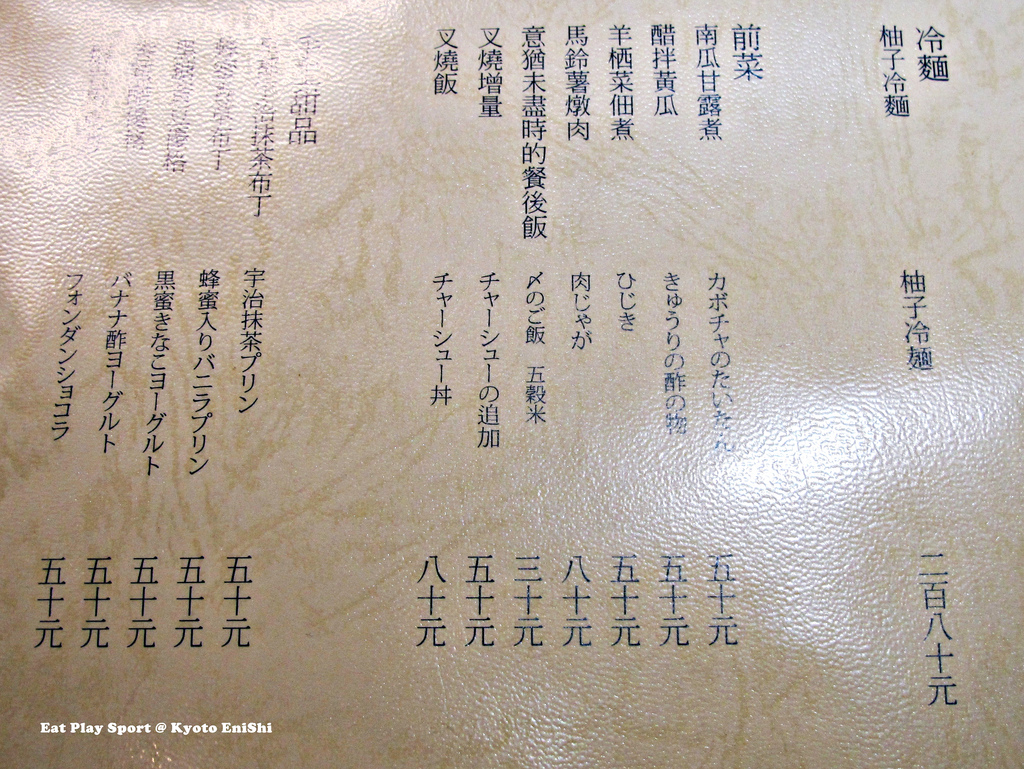 冷麵
柚子冷麵
柚子冷麺
二百八十元
前菜
南瓜甘露煮
カボチャのたいたん
五十元
醋拌黃瓜
きゅうりの酢の物
五十元
羊栖菜佃煮
ひじき
五十元
馬鈴薯燉肉
肉じゃが
八十元
意猶未盡時的餐後飯
〆のご飯 五穀米
三十元
叉燒增量
チャーシューの追加
五十元
叉燒飯
チャーシュー丼
八十元
甜品
抹茶布丁
宇治抹茶プリン
五十元
布丁
蜂蜜入りバニラプリン
五十元
黒蜜きなこヨーグルト
五十元
バナナ酢ヨーグルト
五十元
フォンダンショコラ
五十元
Eat Play Sport @ Kyoto EniShi